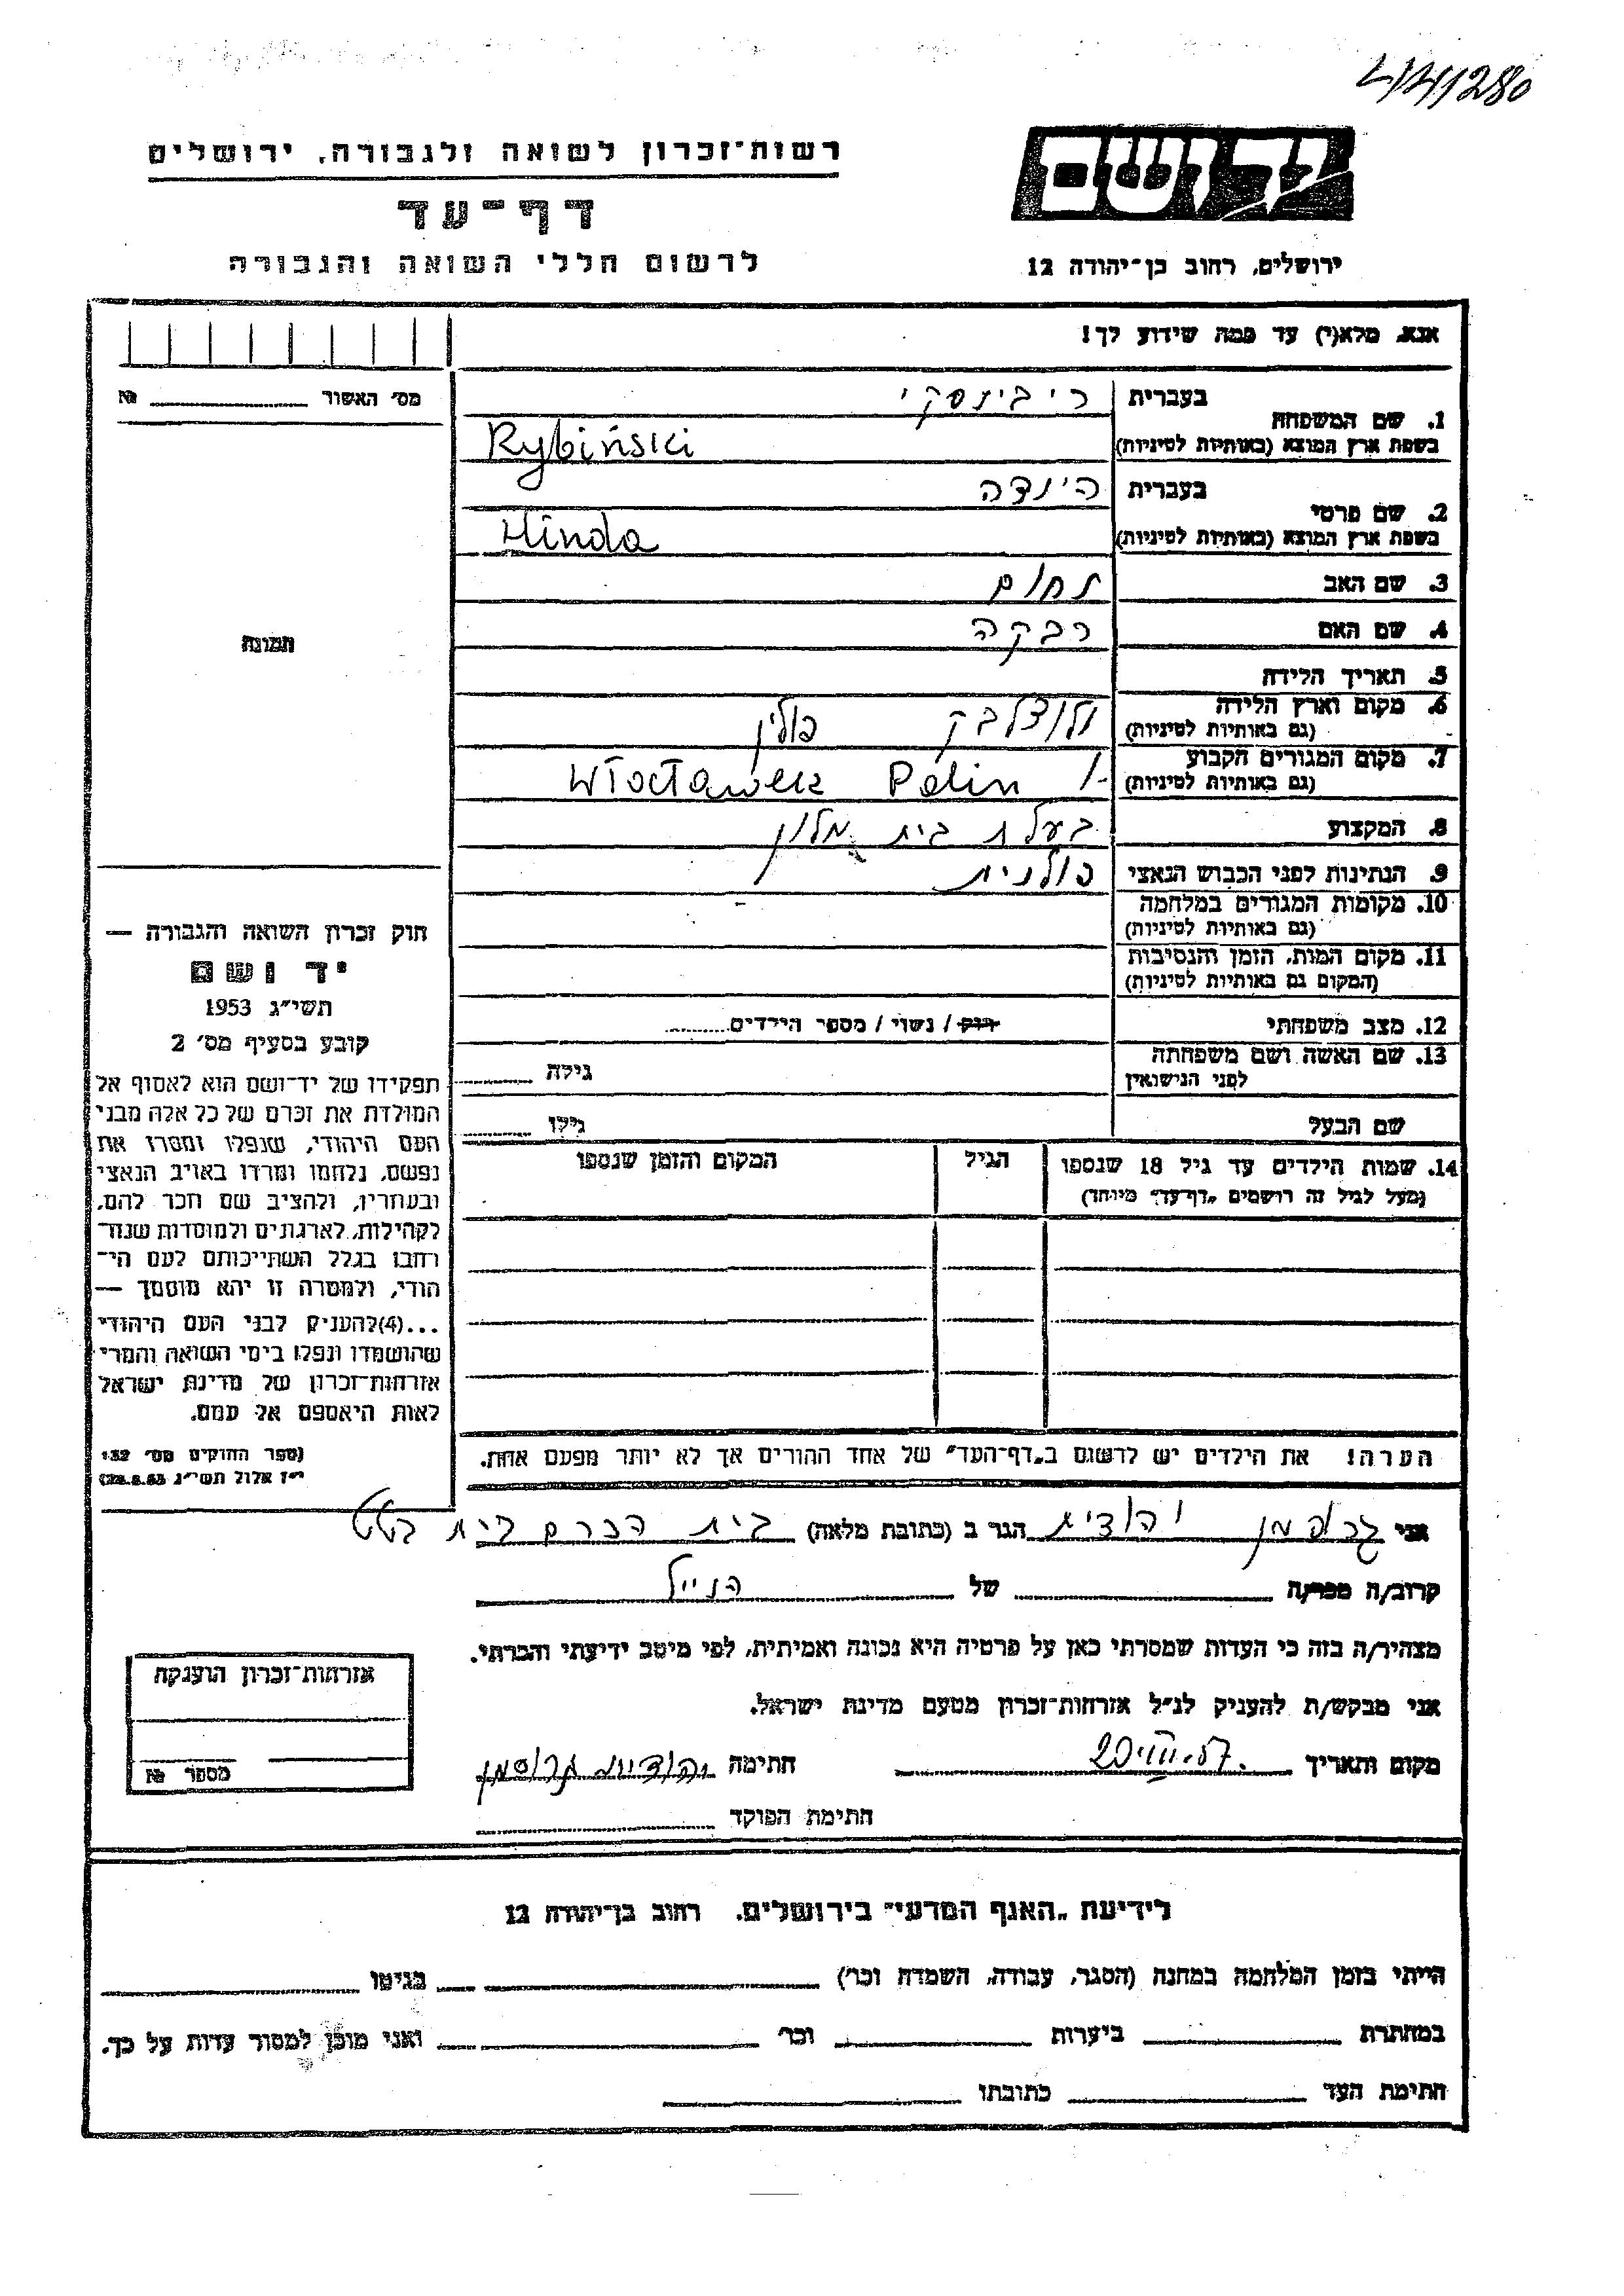 4/4/1280
רשות־זכרון לשואה ולגבורה, ירושלים
יד ושם
דף־עד
לרשום חללי השואה והגבורה
ירושלים, רחוב בן־יהודה 12
אנא, מלא(י) עד כמה שידוע לך!
מס׳ האשור № 
1. שם המשפחה בעברית ריבינסקי
בשפת ארץ המוצא (באותיות לטיניות) Rybiński
2. שם פרטי בעברית הינדה
בשפת ארץ המוצא (באותיות לטיניות) Hinda
3. שם האב נחום
4. שם האם רבקה
5. תאריך הלידה
6. מקום וארץ הלידה
(גם באותיות לטיניות) ולוצלבק פולין
7. מקום המגורים הקבוע
(גם באותיות לטיניות) Włocławek Polin
8. המקצוע בעלת בית מלון
9. הנתינות לפני הכבוש הנאצי פולנית
10. מקומות המגורים במלחמה
(גם באותיות לטיניות)
11. מקום המות, הזמן והנסיבות
(המקום גם באותיות לטיניות)
12. מצב משפחתי רוק / נשוי / מספר הילדים
13. שם האשה ושם משפחתה
לפני הנישואין גילה
שם הבעל גילו
14. שמות הילדים עד גיל 18 שנספו הגיל המקום והזמן שנספו
(מעל לגיל זה רושמים „דף־עד״ מיוחד)
תמונה
חוק זכרון השואה והגבורה —
יד ושם
תשי״ג 1953
קובע בסעיף מס׳ 2
תפקידו של יד־ושם הוא לאסוף אל
המולדת את זכרם של כל אלה מבני
העם היהודי, שנפלו ומסרו את
נפשם, נלחמו ומרדו באויב הנאצי
ובעוזריו, ולהציב שם וזכר להם,
לקהילות, לארגונים ולמוסדות שנח־
רבו בגלל השתייכותם לעם הי־
הודי, ולמטרה זו יהא מוסמך —
...(4) להעניק לבני העם היהודי
שהושמדו ונפלו בימי השואה והמרי
אזרחות־זכרון של מדינת ישראל
לאות היאספם אל עמם.
(ספר החוקים מס׳ 132
י״ז אלול תשי״ג 28.8.53)
הערה! את הילדים יש לרשום ב„דף־העד״ של אחד ההורים אך לא יותר מפעם אחת.
אני גרוסמן יהודית הגר ב (כתובת מלאה) בית הכרם בית
קרוב/ה מכר/ה של הנ״ל
מצהיר/ה בזה כי העדות שמסרתי כאן על פרטיה היא נכונה ואמיתית, לפי מיטב ידיעתי והכרתי.
אני מבקש/ת להעניק לנ״ל אזרחות־זכרון מטעם מדינת ישראל.
מקום ותאריך 20.VIII.57 חתימה יהודית גרוסמן
חתימת הפוקד
אזרחות־זכרון הוענקה
מספר №
לידיעת „האגף המדעי״ בירושלים, רחוב בן־יהודה 12
הייתי בזמן המלחמה במחנה (הסגר, עבודה, השמדה וכו׳) בגיטו
במחתרת ביערות וכו׳ ואני מוכן למסור עדות על כך.
חתימת העד כתובתו